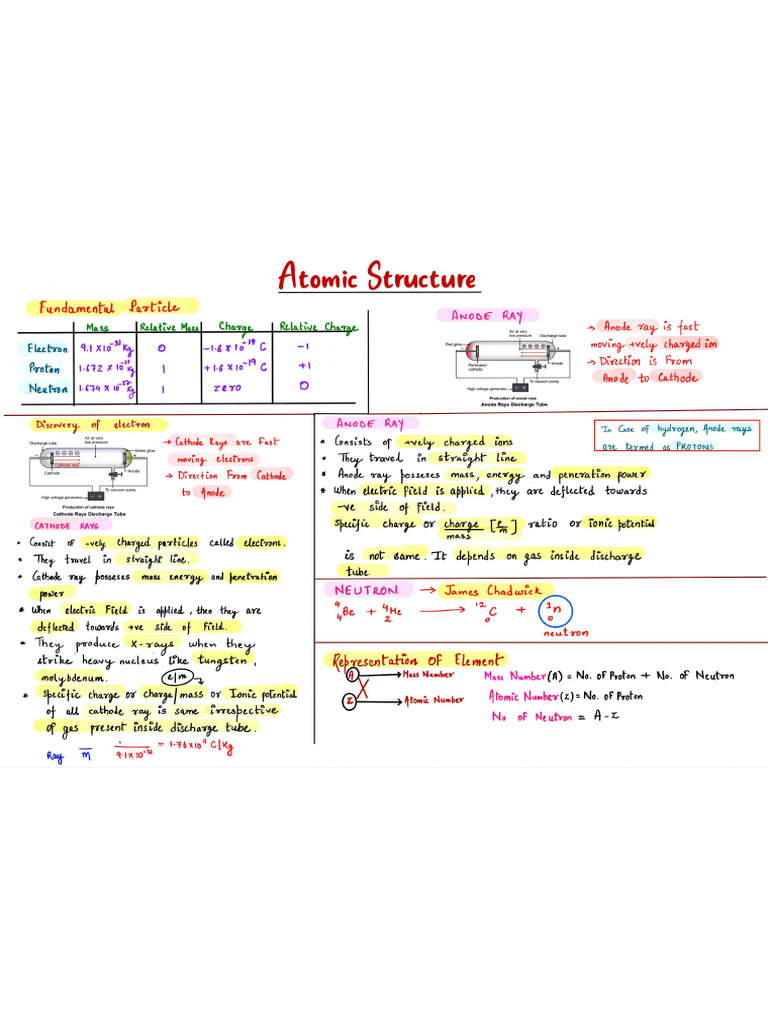 Atomic Structure
Fundamental Particle
Mass Relative Mass Charge Relative Charge
Electron 9.1 x 10⁻³¹ kg 0 -1.6 x 10⁻¹⁹ C -1
Proton kg 1 +1.6 x 10⁻¹⁹ C +1
Neutron kg 1 zero 0
ANODE RAY
Air at very
low pressure
Discharge tube
Red glow
Perforated
cathode
Anode
To vacuum pump
High voltage generator
Production of anode rays
Anode Rays Discharge Tube
→ Anode ray is fast
moving +vely charged ion
→ Direction is From
Anode to Cathode
Discovery of electron
Air at very
low pressure
Discharge tube
Green glow
Cathode rays
Cathode
Anode
To vacuum pump
High voltage generator
Production of cathode rays
Cathode Rays Discharge Tube
→ Cathode Rays are Fast
moving electrons
→ Direction From Cathode
to Anode
CATHODE RAYS
• Consist of -vely charged particles called electrons.
• They travel in straight line.
• Cathode ray posseses mass energy and penetration
power
* When electric Field is applied, then they are
deflected towards +ve side of Field.
* They produce X-rays when they
strike heavy nucleus like tungsten,
molybdenum. e/m
* Specific charge or charge/mass or Ionic potential
of all cathode ray is same irrespective
of gas present inside discharge tube.
Ray m 9.1x10⁻³¹ = 1.76x10¹¹ C/kg
ANODE RAY
* Consists of +vely charged ions
* They travel in straight line
* Anode ray posseses mass, energy and peneration power
* When electric field is applied, they are deflected towards
-ve side of Field.
Specific charge or charge/mass [e/m] ratio or ionic potential
is not same. It depends on gas inside discharge
tube.
In Case of hydrogen, Anode rays
are termed as PROTONS
NEUTRON → James Chadwick
⁹₄Be + ⁴₂He → ¹²₀C + ¹₀n
neutron
Representation Of Element
A → Mass Number
X
Z → Atomic Number
Mass Number (A) = No. of Proton + No. of Neutron
Atomic Number (Z) = No. of Proton
No of Neutron = A-Z